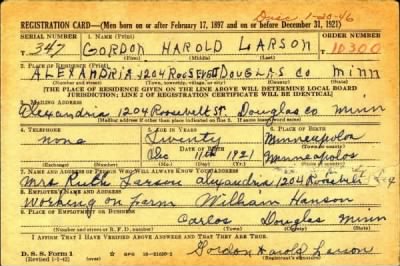 REGISTRATION CARD—(Men born on or after February 17, 1897 and on or before December 31, 1921)
SERIAL NUMBER 1. NAME (Print) ORDER NUMBER
T 347 GORDON HAROLD LARSON 10300
(First) (Middle) (Last)
2. PLACE OF RESIDENCE (Print)
ALEXANDRIA 1204 ROOSEVELT DOUGLAS CO MINN
(Number and street) (Town, township, village, or city) (County) (State)
[THE PLACE OF RESIDENCE GIVEN ON THE LINE ABOVE WILL DETERMINE LOCAL BOARD
JURISDICTION; LINE 2 OF REGISTRATION CERTIFICATE WILL BE IDENTICAL]
3. MAILING ADDRESS
Alexandria 1204 Roosevelt St. Douglas co Minn
[Mailing address if other than place indicated on line 2. If same insert word same]
4. TELEPHONE 5. AGE IN YEARS 6. PLACE OF BIRTH
none Twenty Minneapolis
DATE OF BIRTH (Town or county)
Dec 11th 1921 Minneapolis
(Exchange) (Number) (Mo.) (Day) (Yr.) (State or country)
7. NAME AND ADDRESS OF PERSON WHO WILL ALWAYS KNOW YOUR ADDRESS
Mrs Ruth Larson Alexandria 1204 Roosevelt
8. EMPLOYER'S NAME AND ADDRESS
Working on farm William Hanson
9. PLACE OF EMPLOYMENT OR BUSINESS
Carlos Douglas Minn
(Number and street or R. F. D. number) (Town) (County) (State)
I AFFIRM THAT I HAVE VERIFIED ABOVE ANSWERS AND THAT THEY ARE TRUE.
D. S. S. Form 1
(Revised 1-1-42) (over) Gordon Harold Larson
(Registrant's signature)